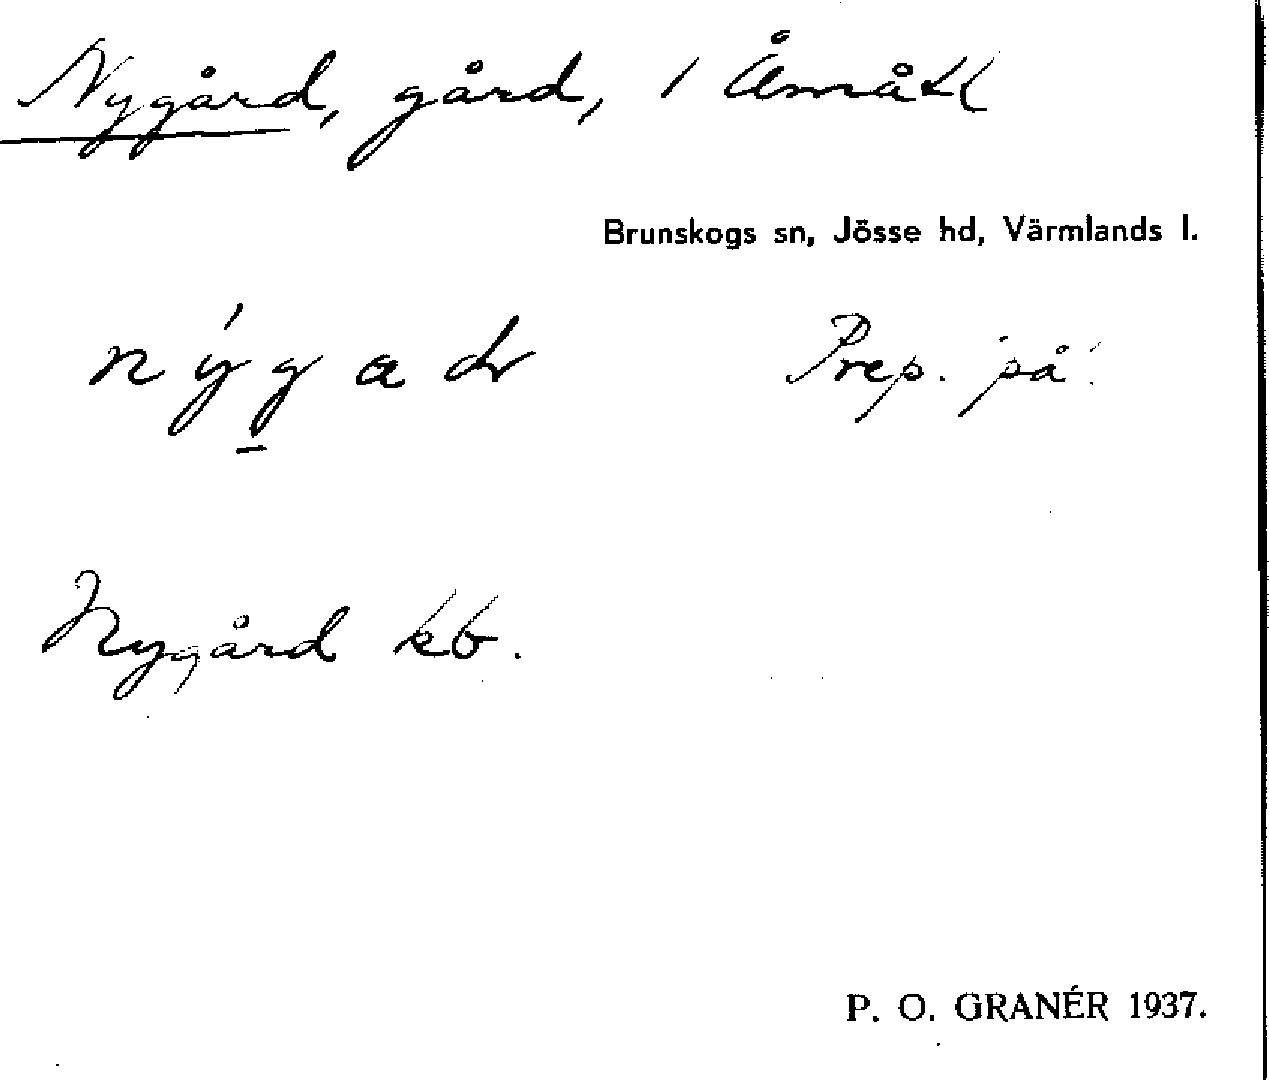 Nygård, gård, / Åmåtl
Brunskogs sn, Jösse hd, Värmlands l.
nýgadr Prep. 'på'.
Nygård kb.
P. O. GRANÉR 1937.